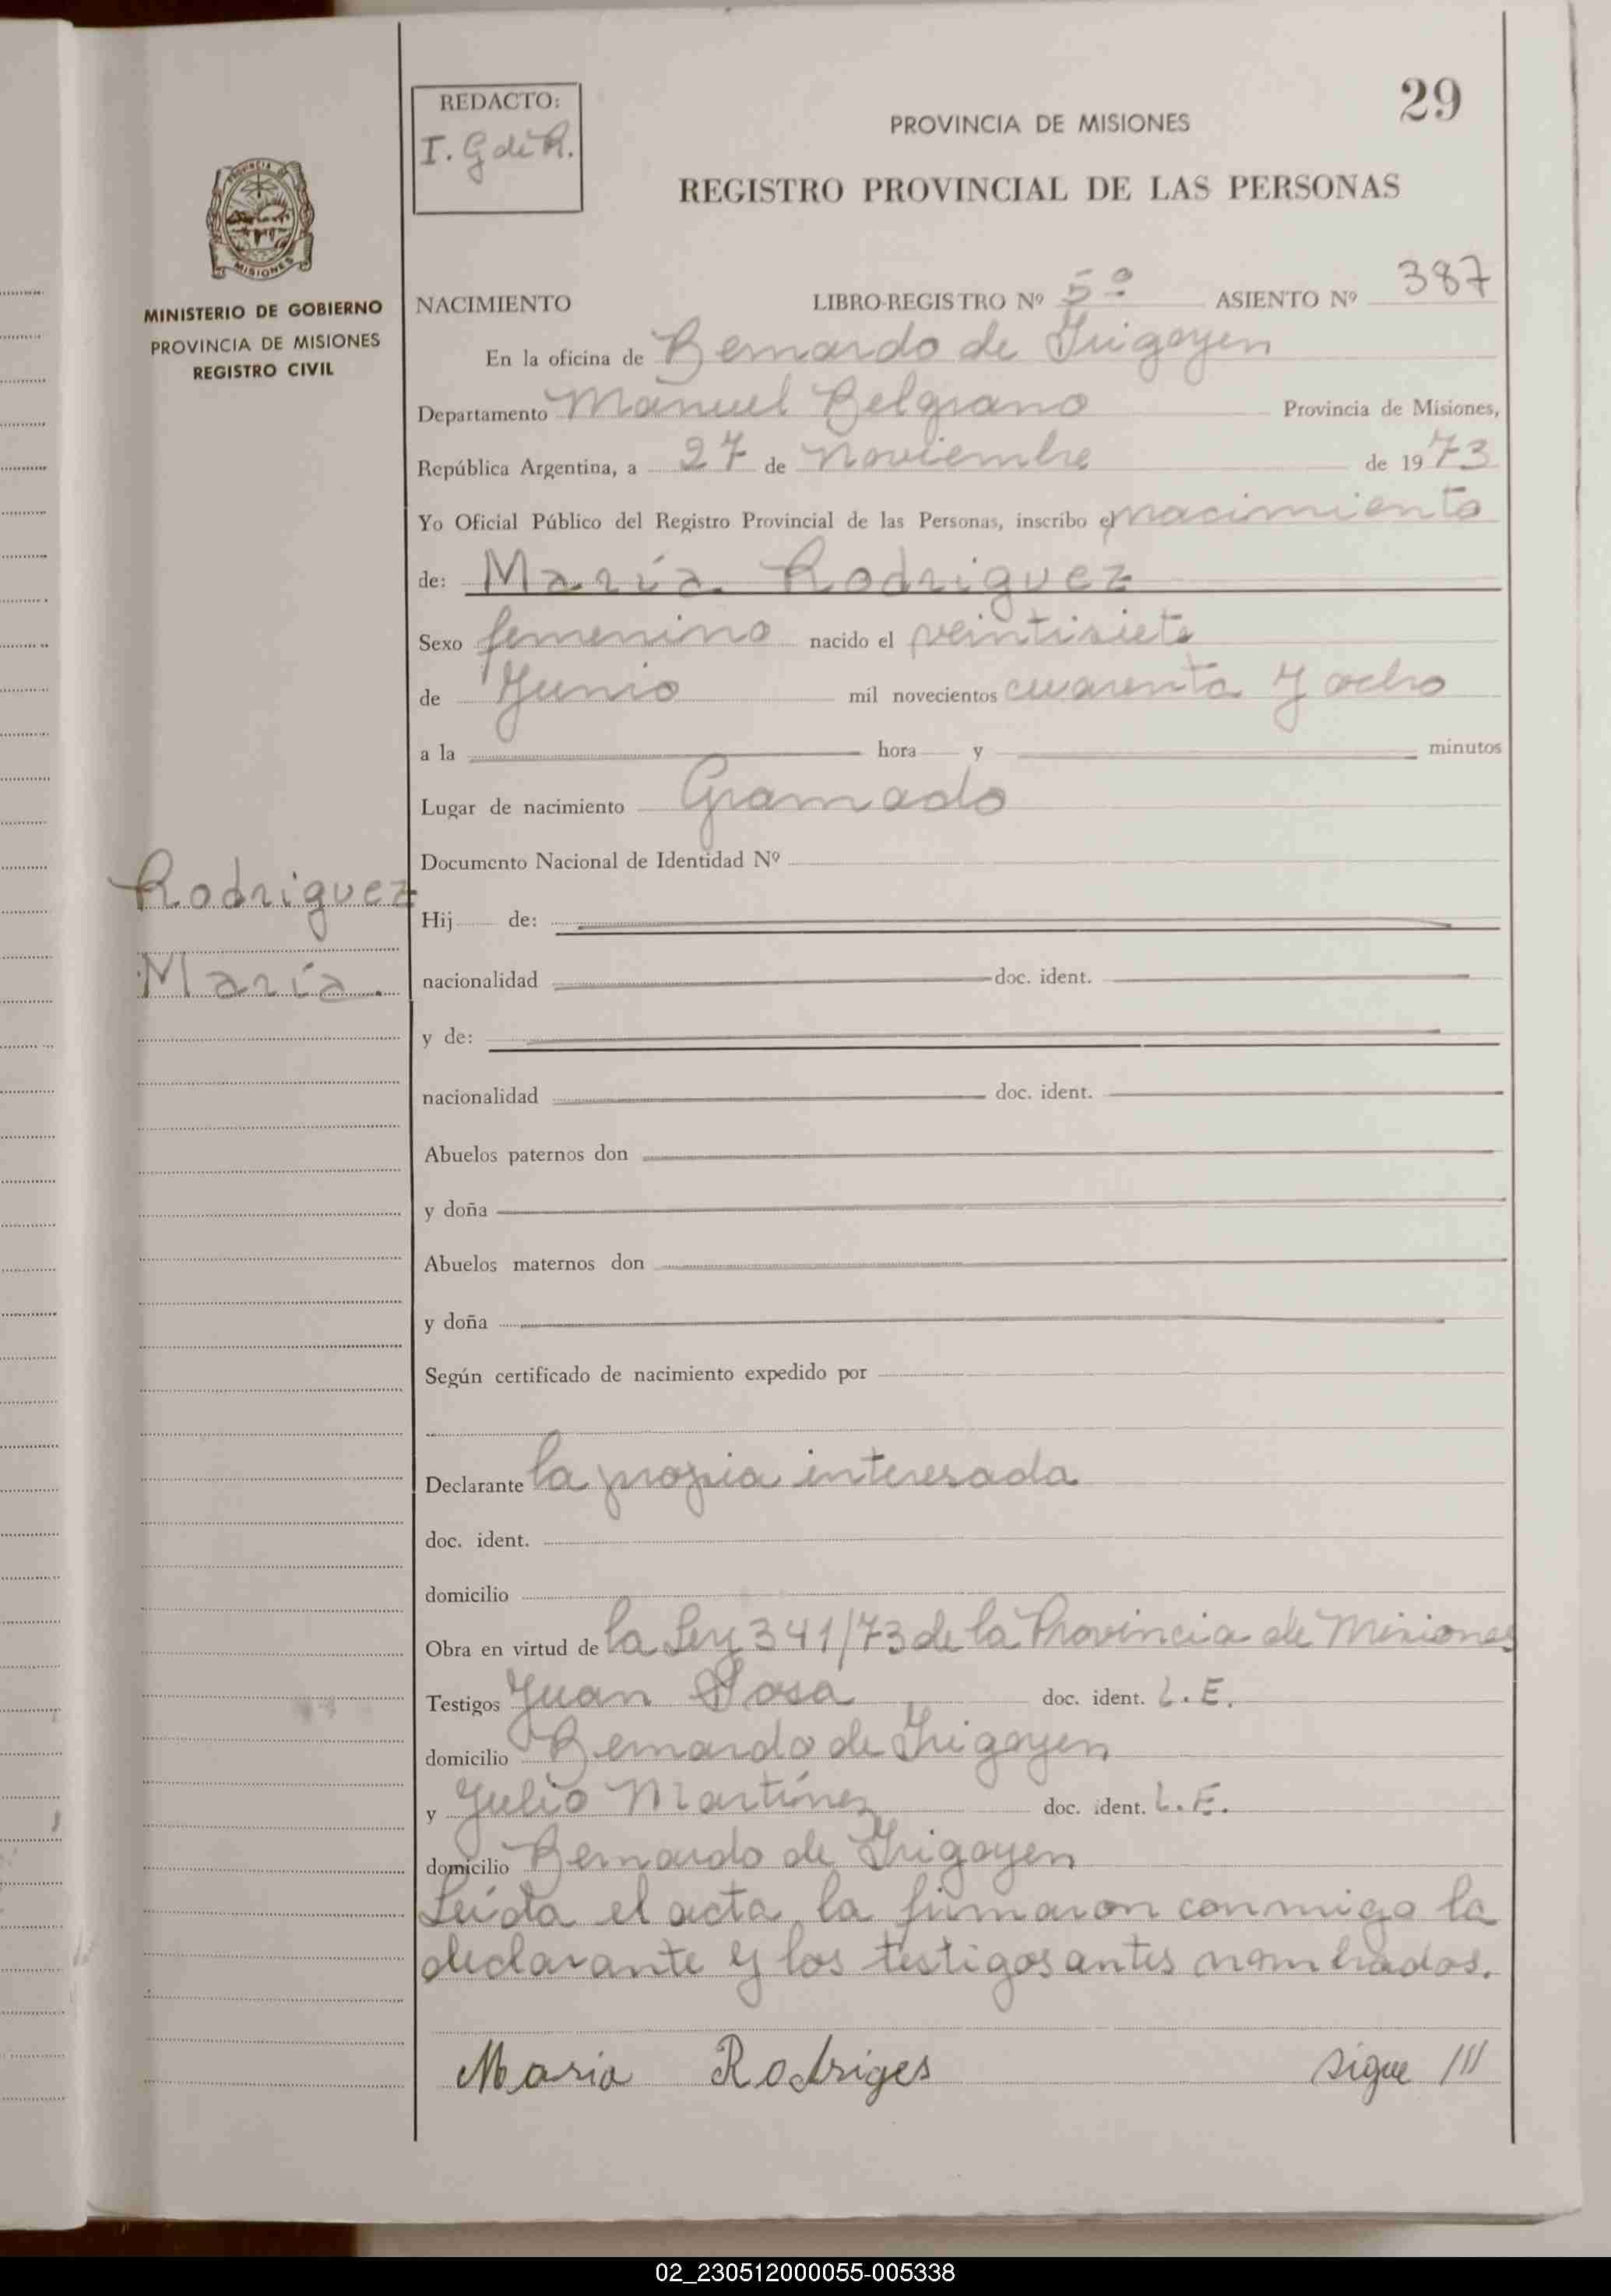 REDACTO:
I. G de R.
29
PROVINCIA DE MISIONES
REGISTRO PROVINCIAL DE LAS PERSONAS
MISIONES
MINISTERIO DE GOBIERNO
PROVINCIA DE MISIONES
REGISTRO CIVIL
NACIMIENTO LIBRO-REGISTRO Nº 5º ASIENTO Nº 387
En la oficina de Bernardo de Irigoyen
Departamento Manuel Belgrano Provincia de Misiones,
República Argentina, a 27 de Noviembre de 1973
Yo Oficial Público del Registro Provincial de las Personas, inscribo el nacimiento
de: María Rodriguez
Sexo femenino nacido el veintisiete
de Junio mil novecientos cuarenta y ocho
a la hora y minutos
Lugar de nacimiento Gramado
Documento Nacional de Identidad Nº
Rodriguez
María.
Hij de:
nacionalidad doc. ident.
y de:
nacionalidad doc. ident.
Abuelos paternos don
y doña
Abuelos maternos don
y doña
Según certificado de nacimiento expedido por
Declarante la propia interesada
doc. ident.
domicilio
Obra en virtud de la Ley 341/73 de la Provincia de Misiones
Testigos Juan Sosa doc. ident. L.E.
domicilio Bernardo de Irigoyen
y Julio Martínez doc. ident. L.E.
domicilio Bernardo de Irigoyen
Leída el acta, la firmaron conmigo la
declarante y los testigos antes nombrados.
Maria Rodriges sigue ///
02_230512000055-005338